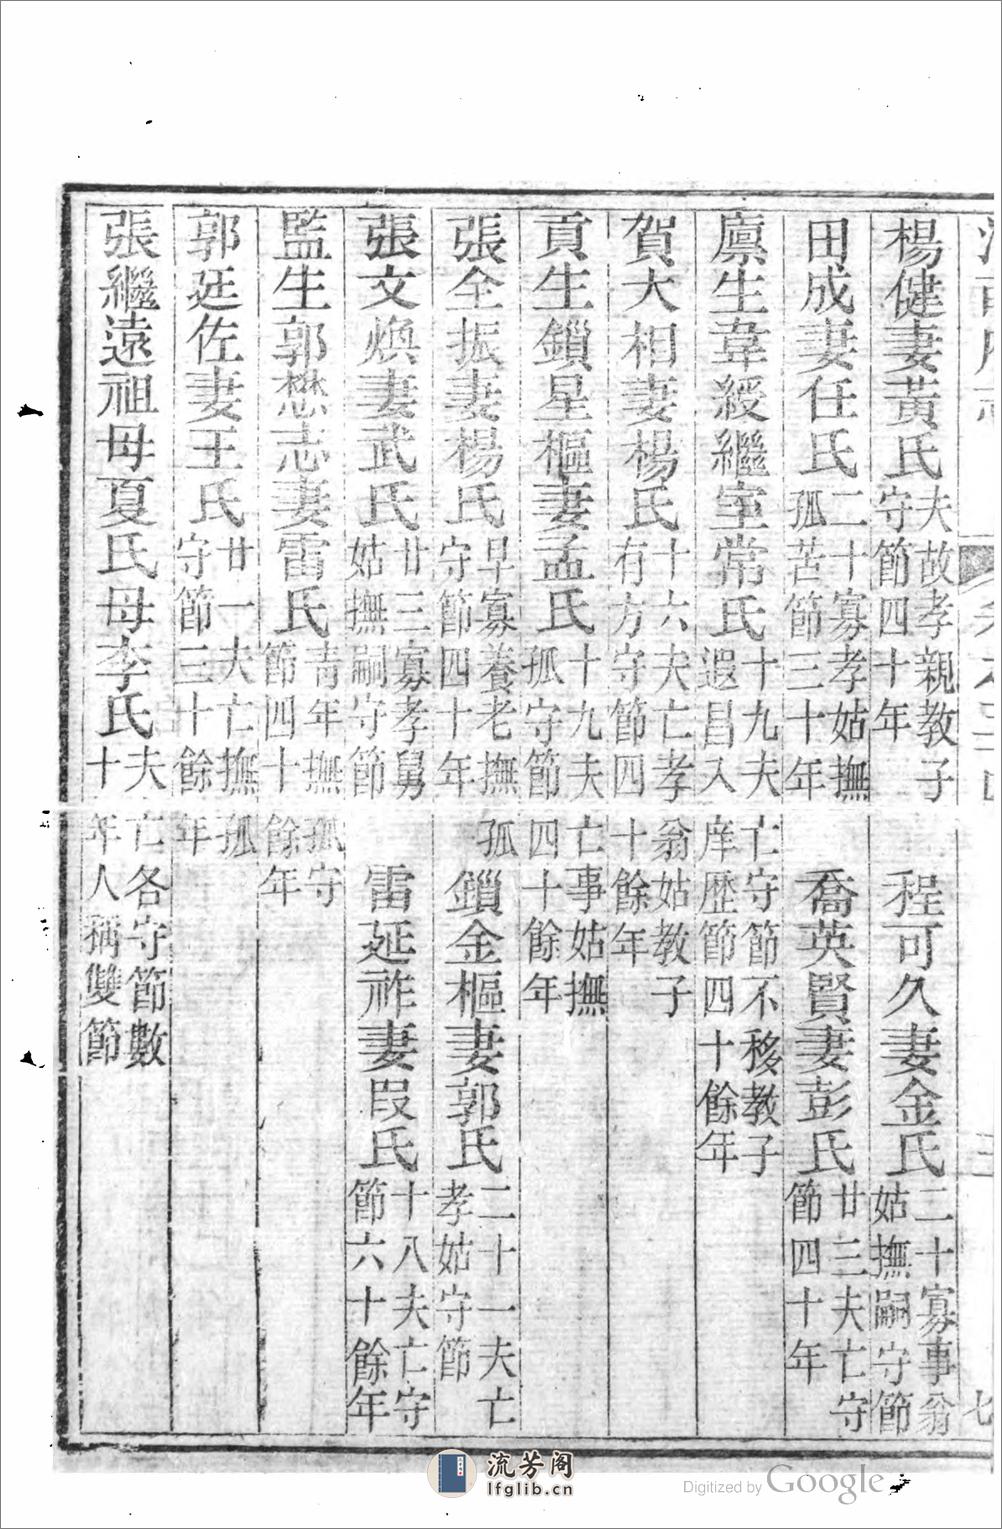 楊健妻黃氏夫故孝親教子守節四十年　程可久妻金氏二十寡事翁姑撫嗣守節
田成妻任氏二十寡孝姑撫孤苦節三十年　喬英賢妻彭氏廿三夫亡守節四十年
廪生韋綬繼室常氏十九夫亡守節不移教子遐昌入庠歷節四十餘年
賀大相妻楊氏十六夫亡孝翁姑教子有方守節四十餘年
貢生鎖星樞妻孟氏十九夫亡事姑撫孤守節四十餘年
張全振妻楊氏早寡養老撫孤守節四十年　鎖金樞妻郭氏二十一夫亡孝姑守節
張文煥妻武氏廿三寡孝舅姑撫嗣守節　雷延祚妻段氏十八夫亡守節六十餘年
監生郭懋志妻雷氏青年撫孤守節四十餘年
郭廷佐妻王氏廿一夫亡撫孤守節三十餘年
張繼遠祖母夏氏母李氏夫亡各守節數十年人稱雙節
流芳阁
lfglib.cn
Digitized by Google